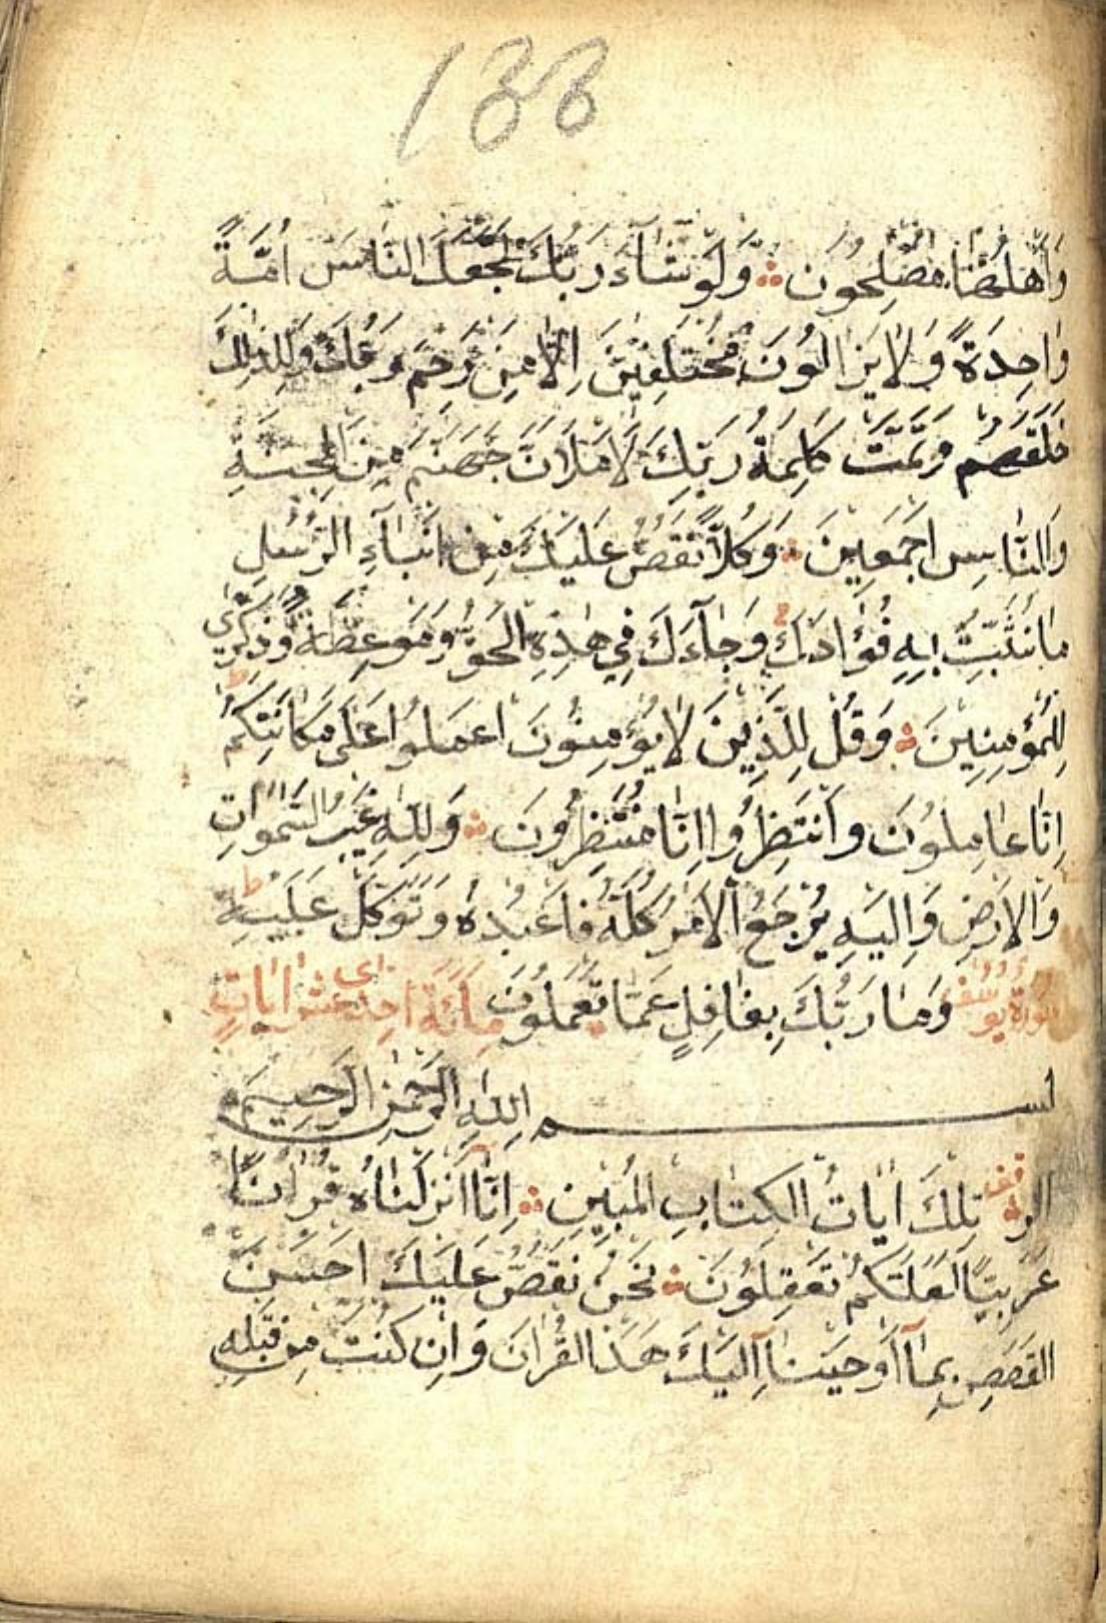 133
وَاَهْلُهَا مُصْلِحُونَ وَلَوْ شَآءَ رَبُّكَ لَجَعَلَ النَّاسَ اُمَّةً
وَاحِدَةً وَلَا يَزَالُونَ مُخْتَلِفِينَ اِلَّا مَنْ رَحِمَ رَبُّكَ وَلِذٰلِكَ
خَلَقَهُمْ وَتَمَّتْ كَلِمَةُ رَبِّكَ لَاَمْلَاَنَّ جَهَنَّمَ مِنَ الْجِنَّةِ
وَالنَّاسِ اَجْمَعِينَ وَكُلًّا نَقُصُّ عَلَيْكَ مِنْ اَنْبَآءِ الرُّسُلِ
مَا نُثَبِّتُ بِهِ فُؤَادَكَ وَجَآءَكَ فِي هٰذِهِ الْحَقُّ وَمَوْعِظَةٌ وَذِكْرٰي
لِلْمُؤْمِنِينَ وَقُلْ لِلَّذِينَ لَا يُؤْمِنُونَ اعْمَلُوا عَلَى مَكَانَتِكُمْ
اِنَّا عَامِلُونَ وَانْتَظِرُوا اِنَّا مُنْتَظِرُونَ وَلِلّٰهِ غَيْبُ السَّمٰوَاتِ
وَالْاَرْضِ وَاِلَيْهِ يُرْجَعُ الْاَمْرُ كُلُّهُ فَاعْبُدْهُ وَتَوَكَّلْ عَلَيْهِ ط
سُورَةُ يُوسُفَ وَمَا رَبُّكَ بِغَافِلٍ عَمَّا تَعْمَلُونَ مِائَةٌ اِحْدٰي عَشَرَ اٰيَاتٍ
بسم اللّٰهِ الرَّحْمٰنِ الرَّحِيمِ
الر تِلْكَ اٰيَاتُ الْكِتَابِ الْمُبِينِ اِنَّا اَنْزَلْنَاهُ قُرْاٰنًا
عَرَبِيًّا لَعَلَّكُمْ تَعْقِلُونَ نَحْنُ نَقُصُّ عَلَيْكَ اَحْسَنَ
الْقَصَصِ بِمَآ اَوْحَيْنَآ اِلَيْكَ هٰذَا الْقُرْاٰنَ وَاِنْ كُنْتَ مِنْ قَبْلِهِ